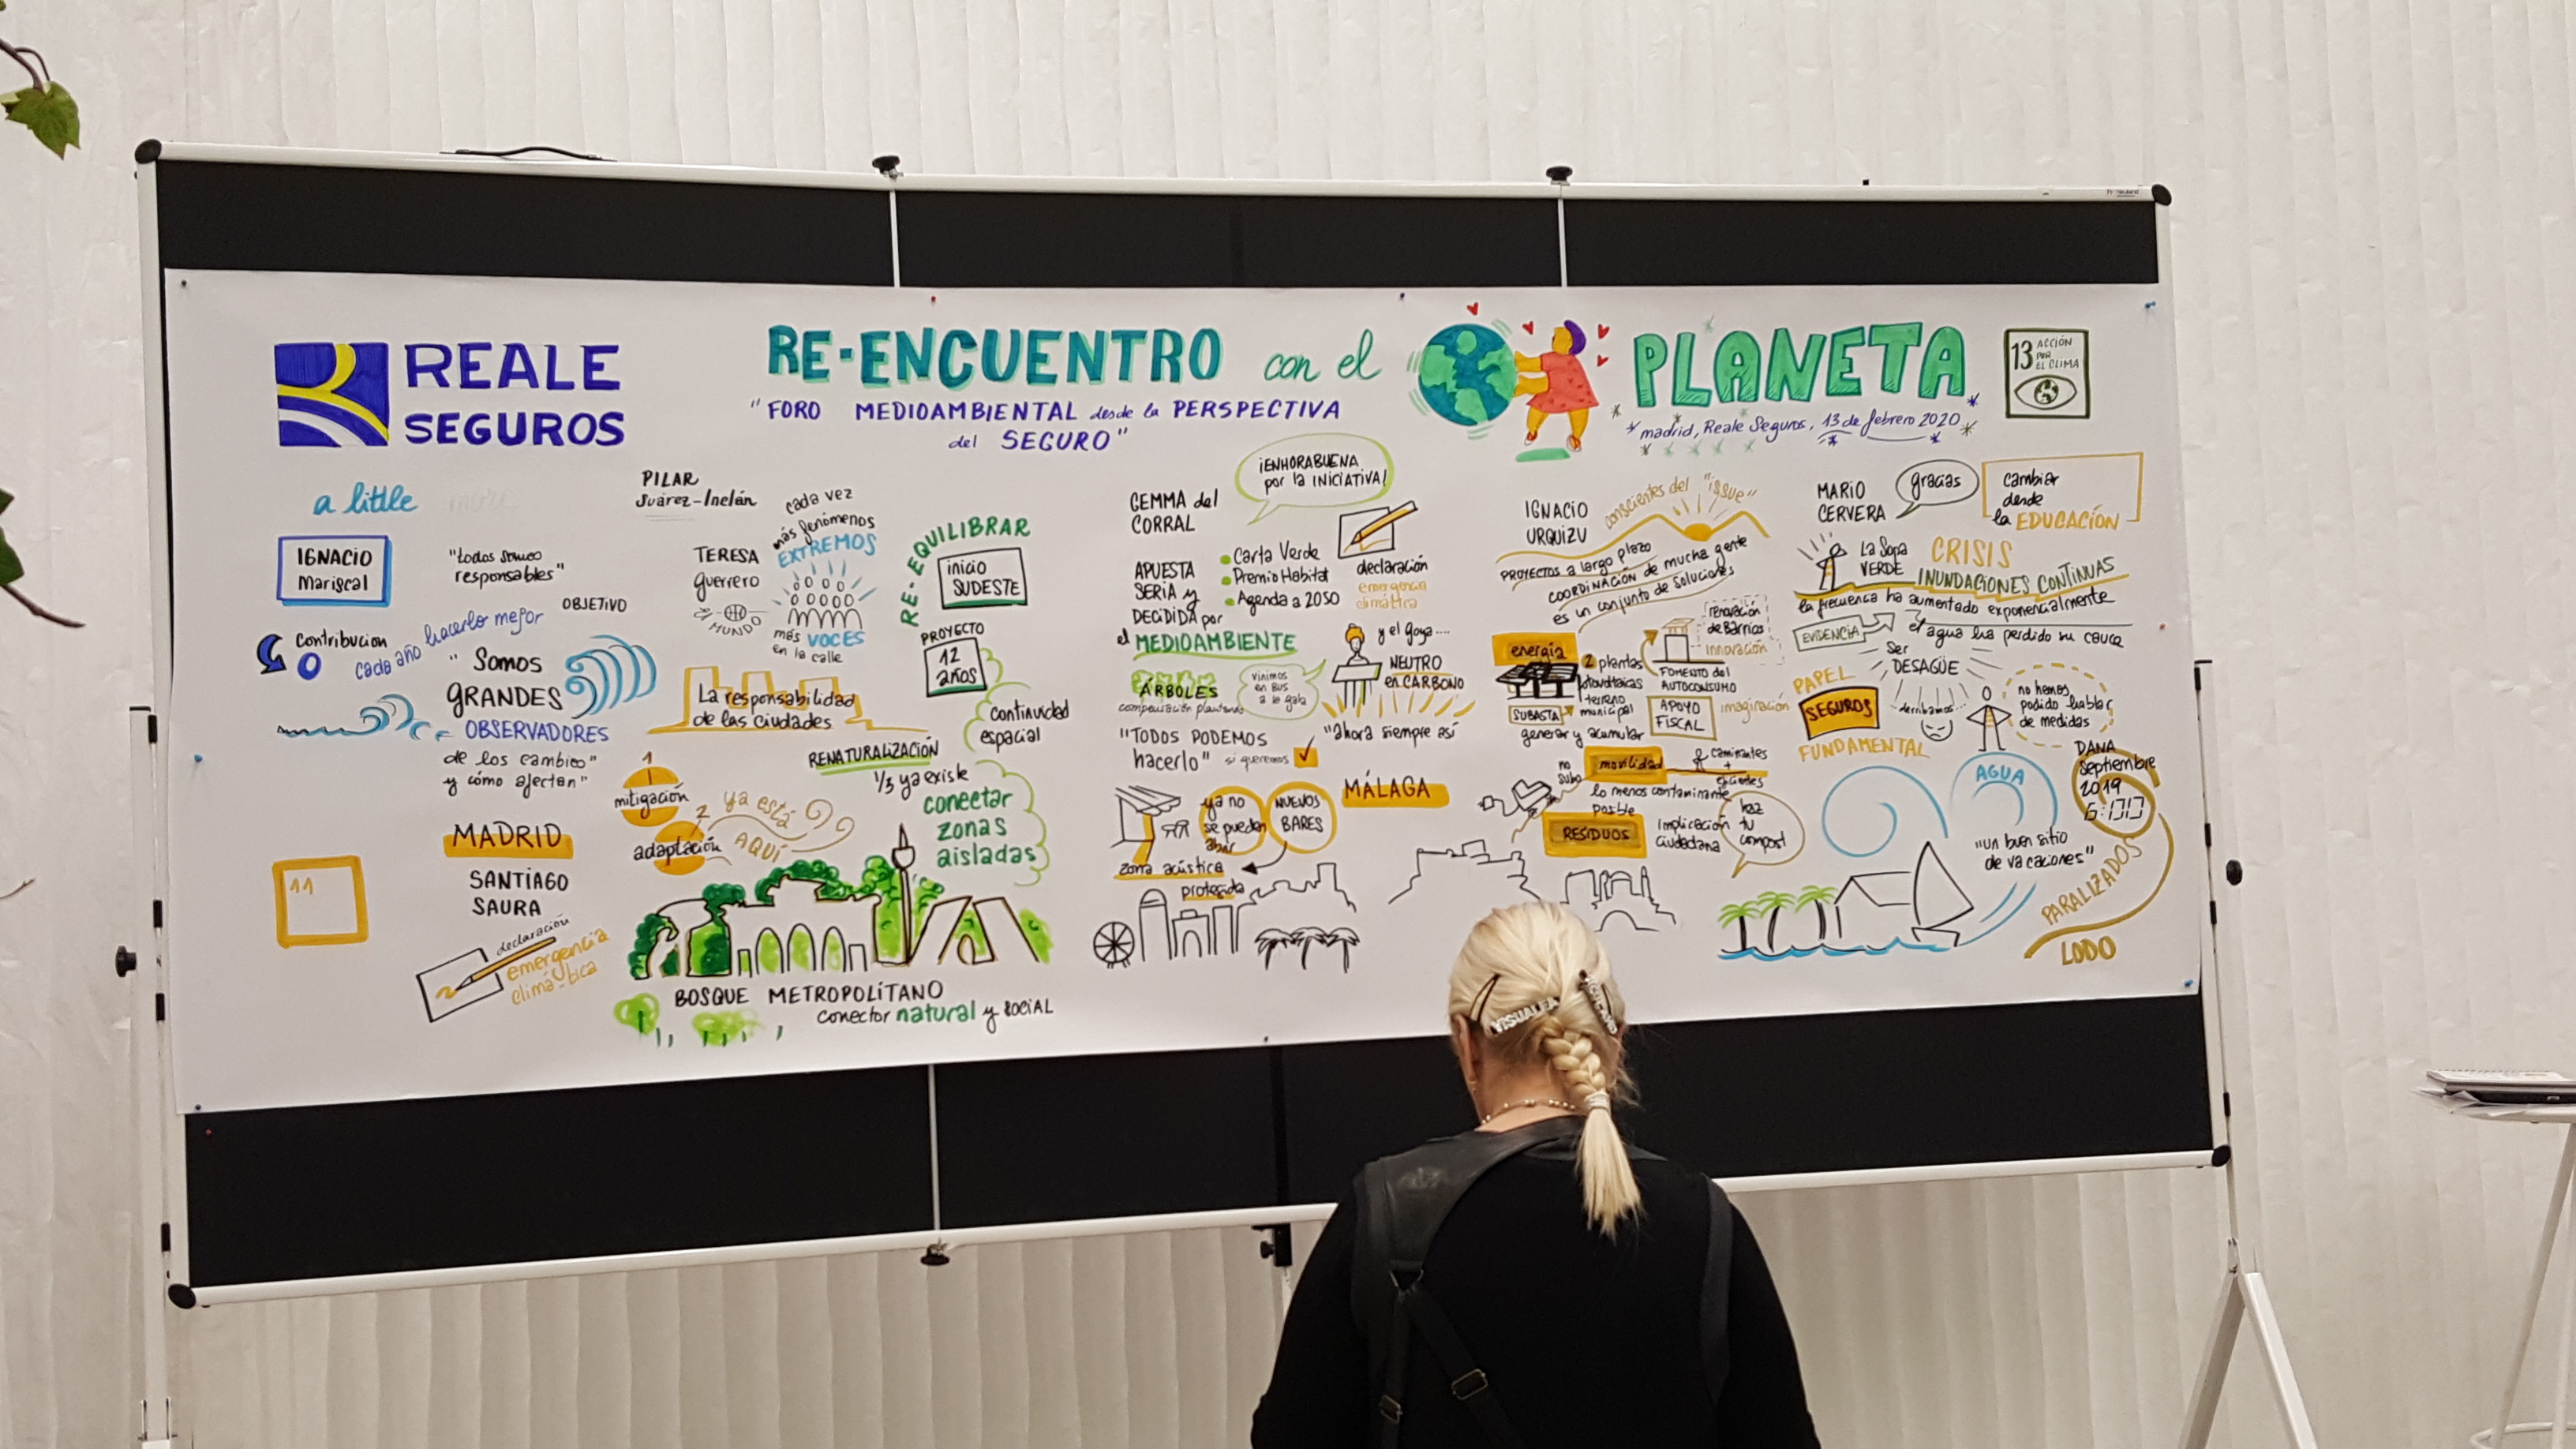 REALE
SEGUROS
RE-ENCUENTRO con el
PLANETA
"FORO MEDIOAMBIENTAL desde la PERSPECTIVA
del SEGURO"
madrid, Reale Seguros, 13 de febrero 2020
13 ACCIÓN
POR
EL CLIMA
a little
more
IGNACIO
Mariscal
"todos somos
responsables"
OBJETIVO
contribucion
0
cada año hacerlo mejor
"Somos
GRANDES
OBSERVADORES
de los cambios"
y cómo afectan"
MADRID
SANTIAGO
SAURA
declaración
emergencia
climática
11
PILAR
Suárez-Inclán
TERESA
guerrero
EL MUNDO
cada vez
más fenómenos
EXTREMOS
más VOCES
en la calle
La responsabilidad
de las ciudades
1
mitigación
2
adaptación
ya está
AQUÍ
RE-EQUILIBRAR
inicio
SUDESTE
PROYECTO
12
años
continuidad
espacial
RENATURALIZACIÓN
1/3 ya existe
conectar
zonas
aisladas
BOSQUE METROPOLITANO
conector natural y SOCIAL
GEMMA del
CORRAL
¡ENHORABUENA
por la INICIATIVA!
APUESTA
SERIA y
DECIDIDA por
el MEDIOAMBIENTE
Carta Verde
Premio Habitat
Agenda a 2050
declaración
emergencia
climática
ÁRBOLES
compensación plantando
vinimos
en BUS
a la gala
y el goya....
NEUTRO
en CARBONO
"ahora siempre así
"TODOS PODEMOS
hacerlo" si queremos
MÁLAGA
ya no
se pueden
abrir
NUEVOS
BARES
zona acústica
protegida
IGNACIO
URQUIZU
conscientes del "issue"
PROYECTOS a largo plazo
COORDINACIÓN de mucha gente
es un conjunto de soluciones
energía
2 plantas
fotovoltaicas
terreno
municipal
SUBASTA
generar y acumular
renovación
de Barrios
innovación
FOMENTO del
AUTOCONSUMO
APOYO
FISCAL
imaginación
no
subo
movilidad
caminantes
+
eficientes
lo menos contaminante
posible
RESIDUOS
implicación
ciudadana
haz
tu
compost
MARIO
CERVERA
gracias
cambiar
desde
la EDUCACIÓN
La Sopa
VERDE
CRISIS
INUNDACIONES CONTINUAS
la frecuencia ha aumentado exponencialmente
EVIDENCIA
el agua ha perdido su cauce
Ser
DESAGÜE
PAPEL
SEGUROS
FUNDAMENTAL
derribamos...
no hemos
podido hablar
de medidas
AGUA
DANA
septiembre
2019
"un buen sitio
de vacaciones"
PARALIZADOS
LODO